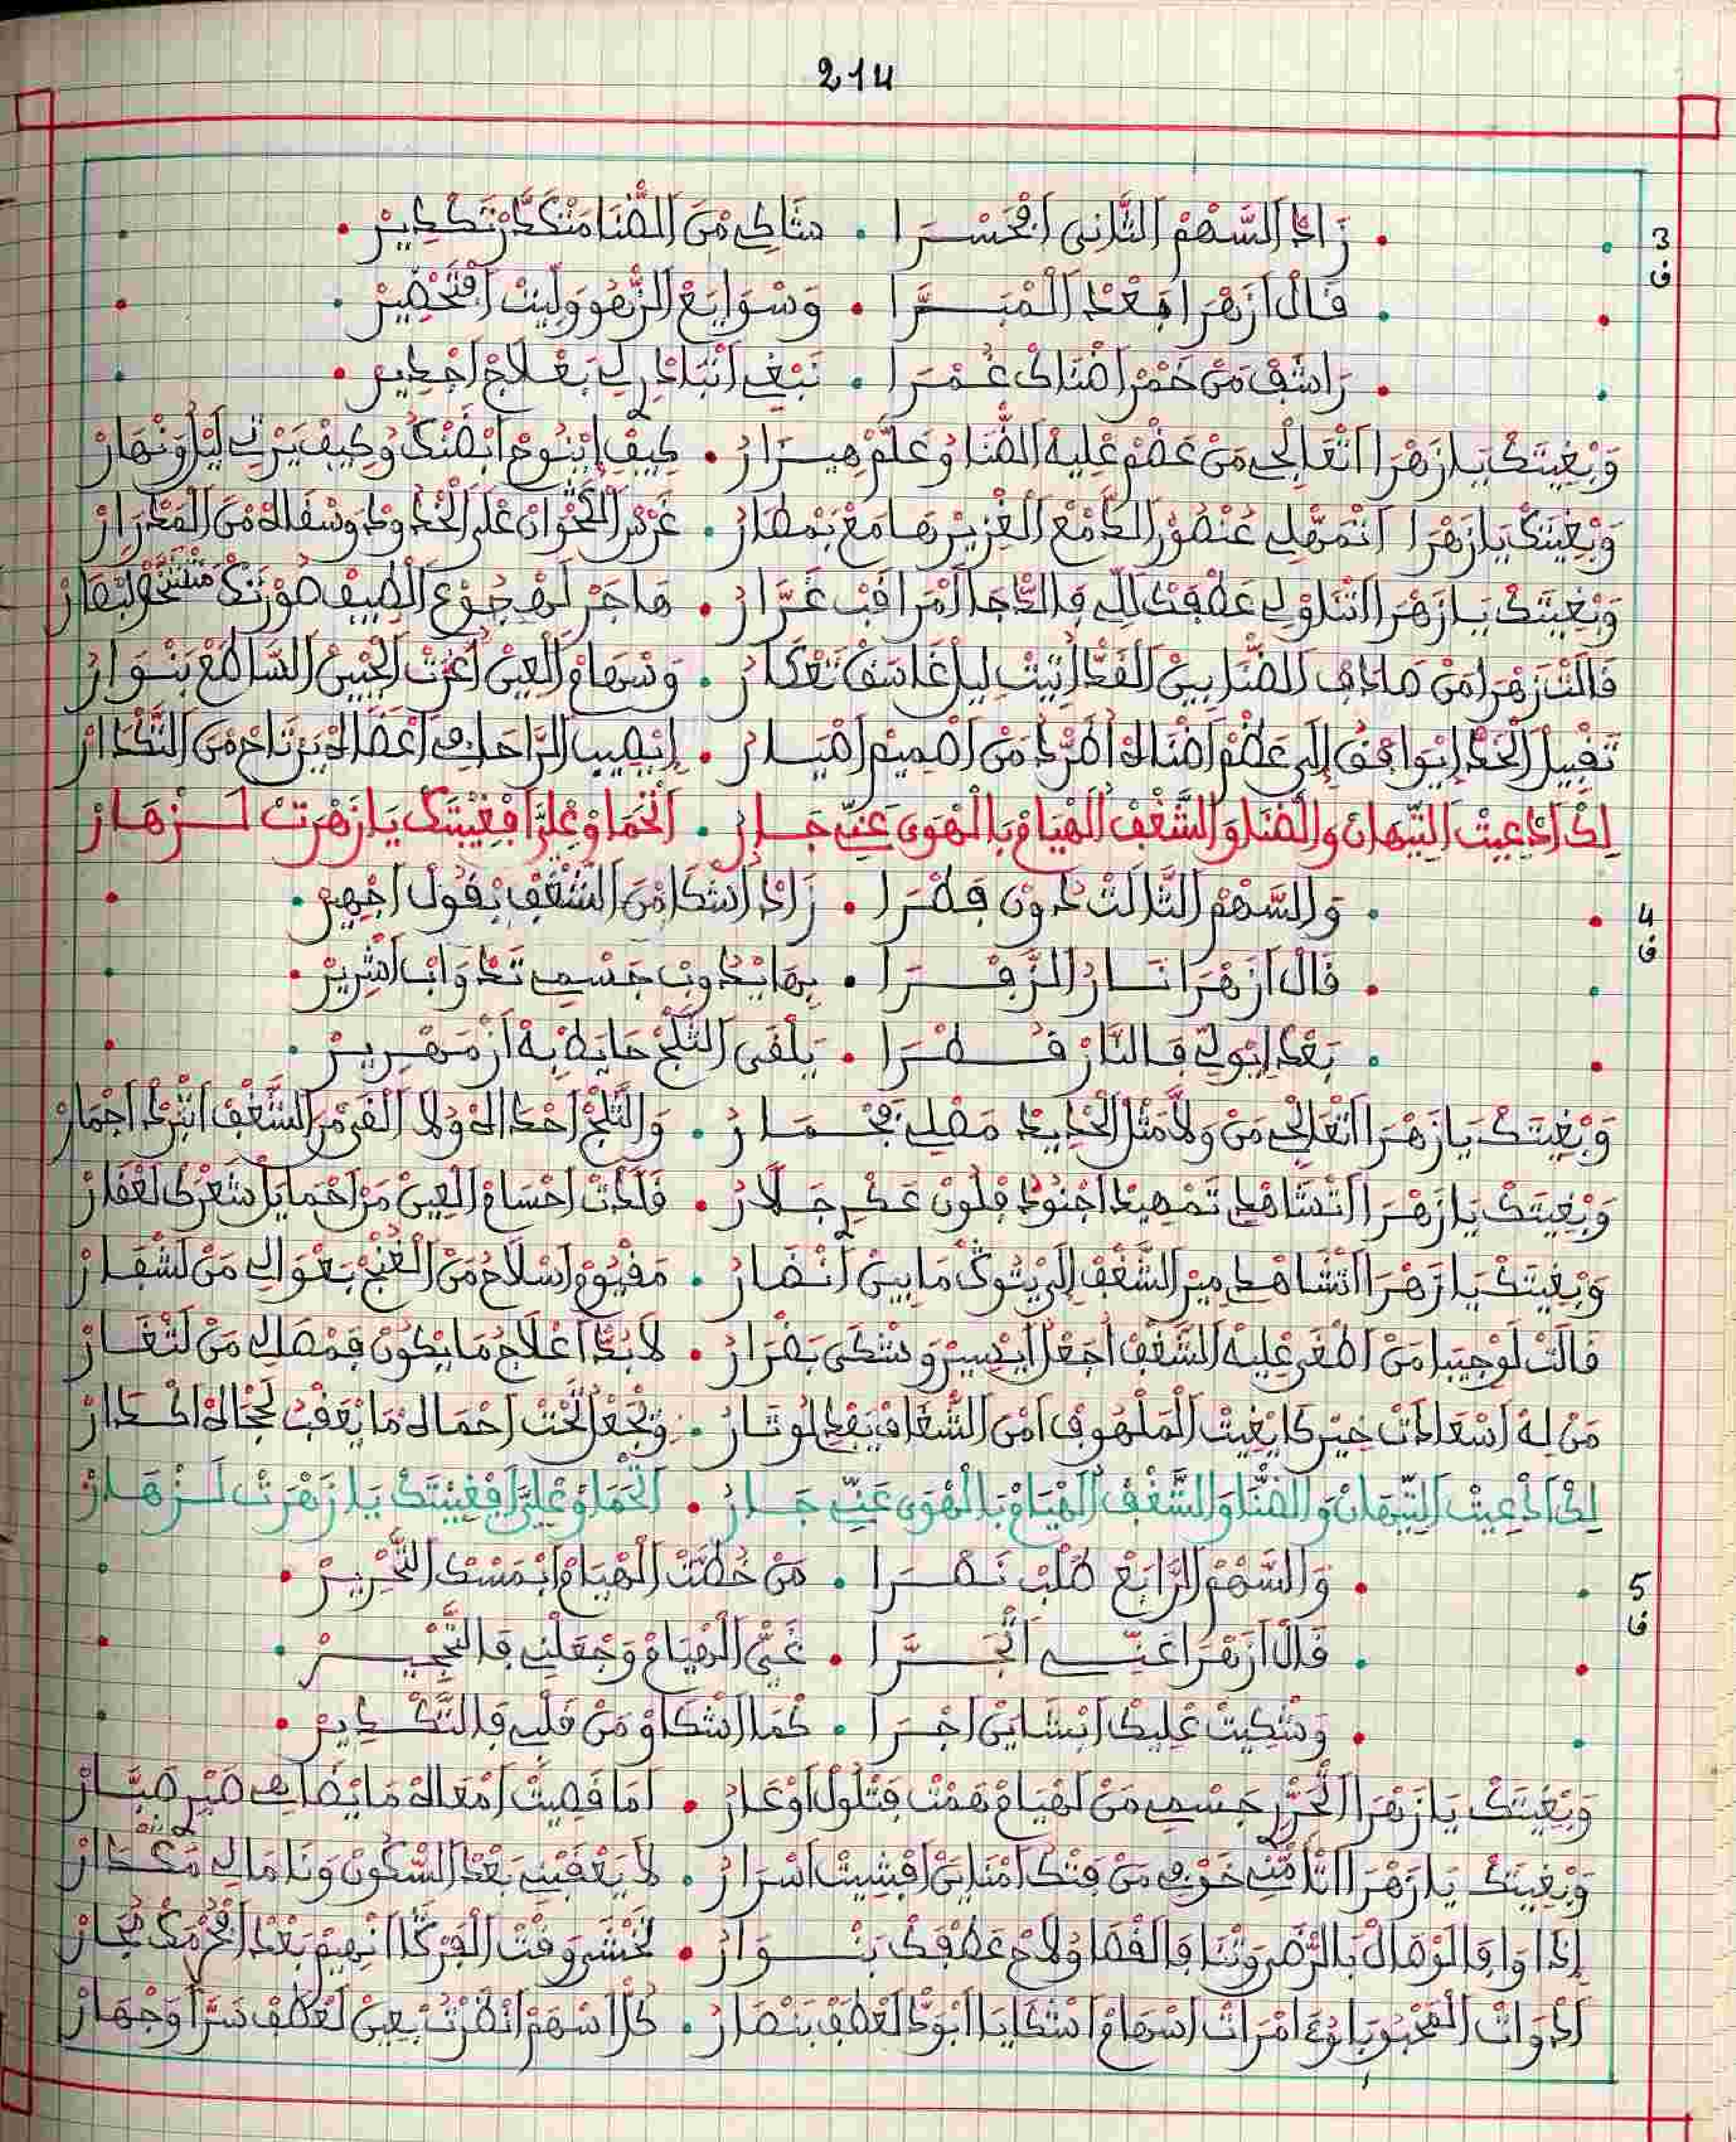 214
3 ف
زَادْ السَّهْمْ الثَّانِي افْجَسْرَا • مْتَاكِي مْنَ الضّْنَا مَنْكَدّْ بَتَكْدِيرْ
قَالْ ازَهْرَا فَبْعْدْ الْمَبْرَّا • وَسْوَايَعْ الزّْهُو وَلِّيتْ افْتَحْضِيرْ
رَاشَفْ مَنْ خَمْرْ اضْنَاكْ غُمْرَا • نَبْغِي اتْبَادْرِي لِي بَعْلَاجْ اجْدِيرْ
وَبْغِيتَكْ يَا زَهْرَا اتْعَالْجِي مَنْ عَضْمْ عْلِيهْ الضّْنَا وْعَلَّمْ مِيزَارْ • كِيفْ اِينُوحْ ابْضَنْكُ وْكِيفْ يَرْتِي لَيْلْ وَنْهَارْ
وَبْغِيتَكْ يَا زَهْرَا اتْمَهّْلِي عُنْصُورْ الدَّمْعْ الْغْزِيرْ هَامَعْ بَمْطَارْ • عَلَى الْخْدُودْ وَسْقَاهْ مَنَ الْمَدْرَارْ
وَبْغِيتَكْ يَا زَهْرَا اتْنَاوْلِي عَطْفَكْ لِلِّي فَالدّْجَا امْرَاقَبْ غَرَّارْ • هَاجَرْ لَهْجُوعْ الطِّيفْ صُورْتَكْ
قَالَتْ زَهْرَا مَنْ صَادَفْ الضّْنَا بِينْ الْقَدّْ ابْيَتْ لِيلْ غَاسَقْ تَعْكَارْ • وَسْهَامْ الْعِينْ الْجْبِينْ السَّاطَعْ بَنْوَارْ
تَقْبِيلْ الْخَدّْ اِيوَافَقْ اِلَى عَضْمْ اضْنَاهْ اطْرْدْ مَنْ اصْمِيمْ اصْيَارْ • اِيصِيبْ الرَّاحَا فِي اعْضَاهْ يَرْتَاحْ مَنَ التَّكْدَارْ
لِكْ ادْعِيتْ التِّيهَانْ وَالضّْنَا وَالشَّغْفْ الْهْيَامْ يَا الْهْوَى عَنِّي جَارْ • الْحْمَاوْ عْلِيَّ افْغِيبْتَكْ يَا زَهْرَتْ لَزْهَارْ
4 ف
وَالسَّهْمْ الثَّالَثْ دُونْ فَطْرَا • زَادْ اشْكَا مْنَ الشَّغْفْ بِقُولْ اجْهِيرْ
قَالْ ازَهْرَا نَارْ الزَّفْرَا • بِهَا يْدُوبْ جَسْمِي تَدْوَابْ اشْرِيرْ
بَعْدْ اِيوَلِّي فَالنَّارْ قَطْرَا • يَلْقَى الثَّلْجْ حَايَطْ بِهْ ازْمَهْرِيرْ
وَبْغِيتَكْ يَا زَهْرَا اتْعَالْجِي مَنْ وَلَّا مَثْلْ الْحْدِيدْ مَصْلِي بَجْمَارْ • وَالثَّلْجْ احْدَاهْ وْلَا الْقَى مَنَ الشَّغْفْ اتْبَرْدْ اجْمَارْ
وَبْغِيتَكْ يَا زَهْرَا اتْشَاهْدِي تَمْهِيدْ اجْنُودْ فْلُونْ عَكْرِي جَلَّارْ • قَلْدَتْ احْسَامْ الْعِينْ مَنْ احْمَايَلْ شَعْرَكْ لَغْفَارْ
وَبْغِيتَكْ يَا زَهْرَا اتْشَاهْدِي مِيرْ الشَّغْفْ اِلَى يْتُوكْ مَا بِينْ انْضَارْ • مَفْيُومْ اسْلَاحُ مَنْ الْغَنْجْ بَغْوَالِي مَنْ لَشْفَارْ
قَالَتْ لَوْجِيبَا مَنْ اطْغَى عْلِيهْ الشَّغْفْ اجْعَلْ ايْسِيرْ وَشْكَى بَضْرَارْ • لَابُدَّ اعْلَاجُ مَا يْكُونْ فَمْصَالِي مَنْ لَتْغَارْ
مَنْ لِهْ اسْعَادَتْ خِيرْ كَا يْغِيتْ الْمَلْهُوفْ امْنَ الشّْغَافْ يَفْدِي لُوتَارْ • وَيَجْعَلْ تَحْتْ احْمَاهْ مَا يْعَقَبْ الْحَالْ اكْدَارْ
لِكْ ادْعِيتْ التِّيهَانْ وَالضّْنَا وَالشَّغْفْ الْهْيَامْ يَا الْهْوَى عَنِّي جَارْ • الْحْمَاوْ عْلِيَّ افْغِيبْتَكْ يَا زَهْرَتْ لَزْهَارْ
5 ف
وَالسَّهْمْ الرَّابَعْ طْلَبْ نَصْرَا • مَنْ خُطَّتْ الْهْيَامْ ابْمَسْكْ التَّحْرِيرْ
قَالْ ازَهْرَا عَنِّي اتْجَرَّا • غَيّْ الْهْيَامْ وَجْعَلْنِي فَالتَّحْيِيرْ
وَشْكِيتْ عْلِيكْ ابْشَايَنْ اجْرَا • كَمَا اشْكَاوْ مَنْ قَلْبِي فَالتَّكْدِيرْ
وَبْغِيتَكْ يَا زَهْرَا اتْحَرّْرِي جَسْمِي مَنْ لَهْيَامْ هَمْتْ فَتْلُولْ اوْعَارْ • امَا قْصِيتْ امْعَاهْ مَا يْضَاهِي صَبْرِي صَبَّارْ
وَبْغِيتَكْ يَا زَهْرَا اتْأَمّْنِي خَوْفِي مَنْ فَتْكْ امْنَايَنْ افْشِيتْ اسْرَارْ • لَا يَعْقَبْنِي بَعْدْ السّْكُونْ وَنَا مَالِي مَكْدَارْ
اِدَا وَافَا لَوْصَالْ بَالرّْضَى وَتْنَا فَالْقْفَا وْلَاحْ عَطْفَكْ بَنْوَارْ • نَخْشَى وَقْتْ الْفَرْكَا انْهِيمْ بَعْدْ
ادْوَاتْ الْمَحْبُوبَا وْعَ امْرَاتْ اسْهَامْ اشْكَايَا ابْوَدّْ الْعَطْفْ بَنْصَارْ • كُلّْ اسْهَمْ انْظَرْتْ بْعِينْ لَعْطَفْ سَرّْ اوْجْهَارْ